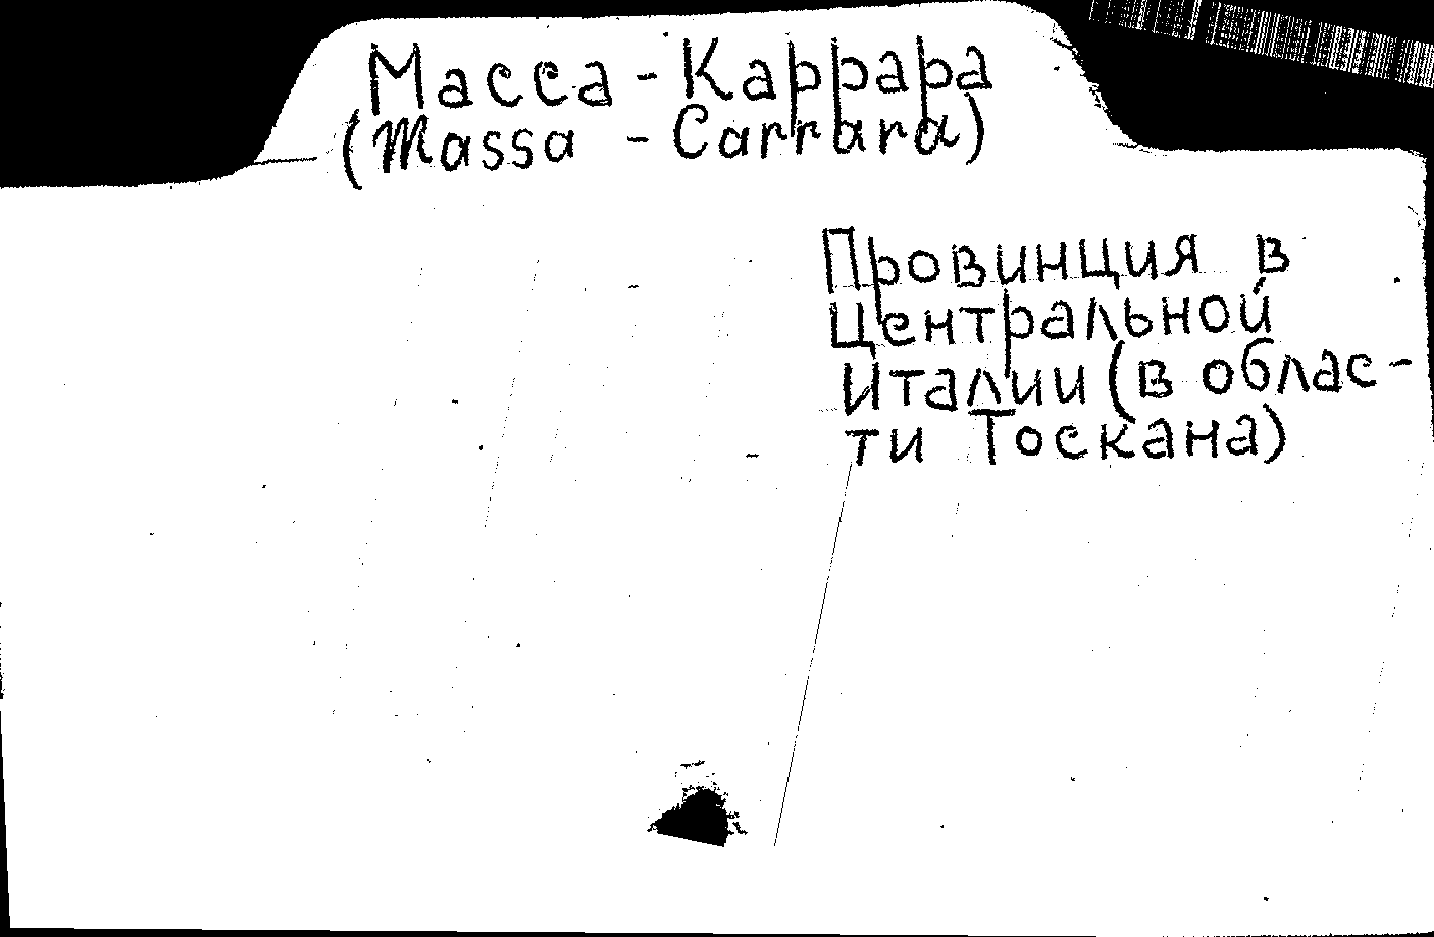 Масса - Каррара
(Massa - Carrara)
Провинция в
Центральной
Италии (в облас-
ти Тоскана)